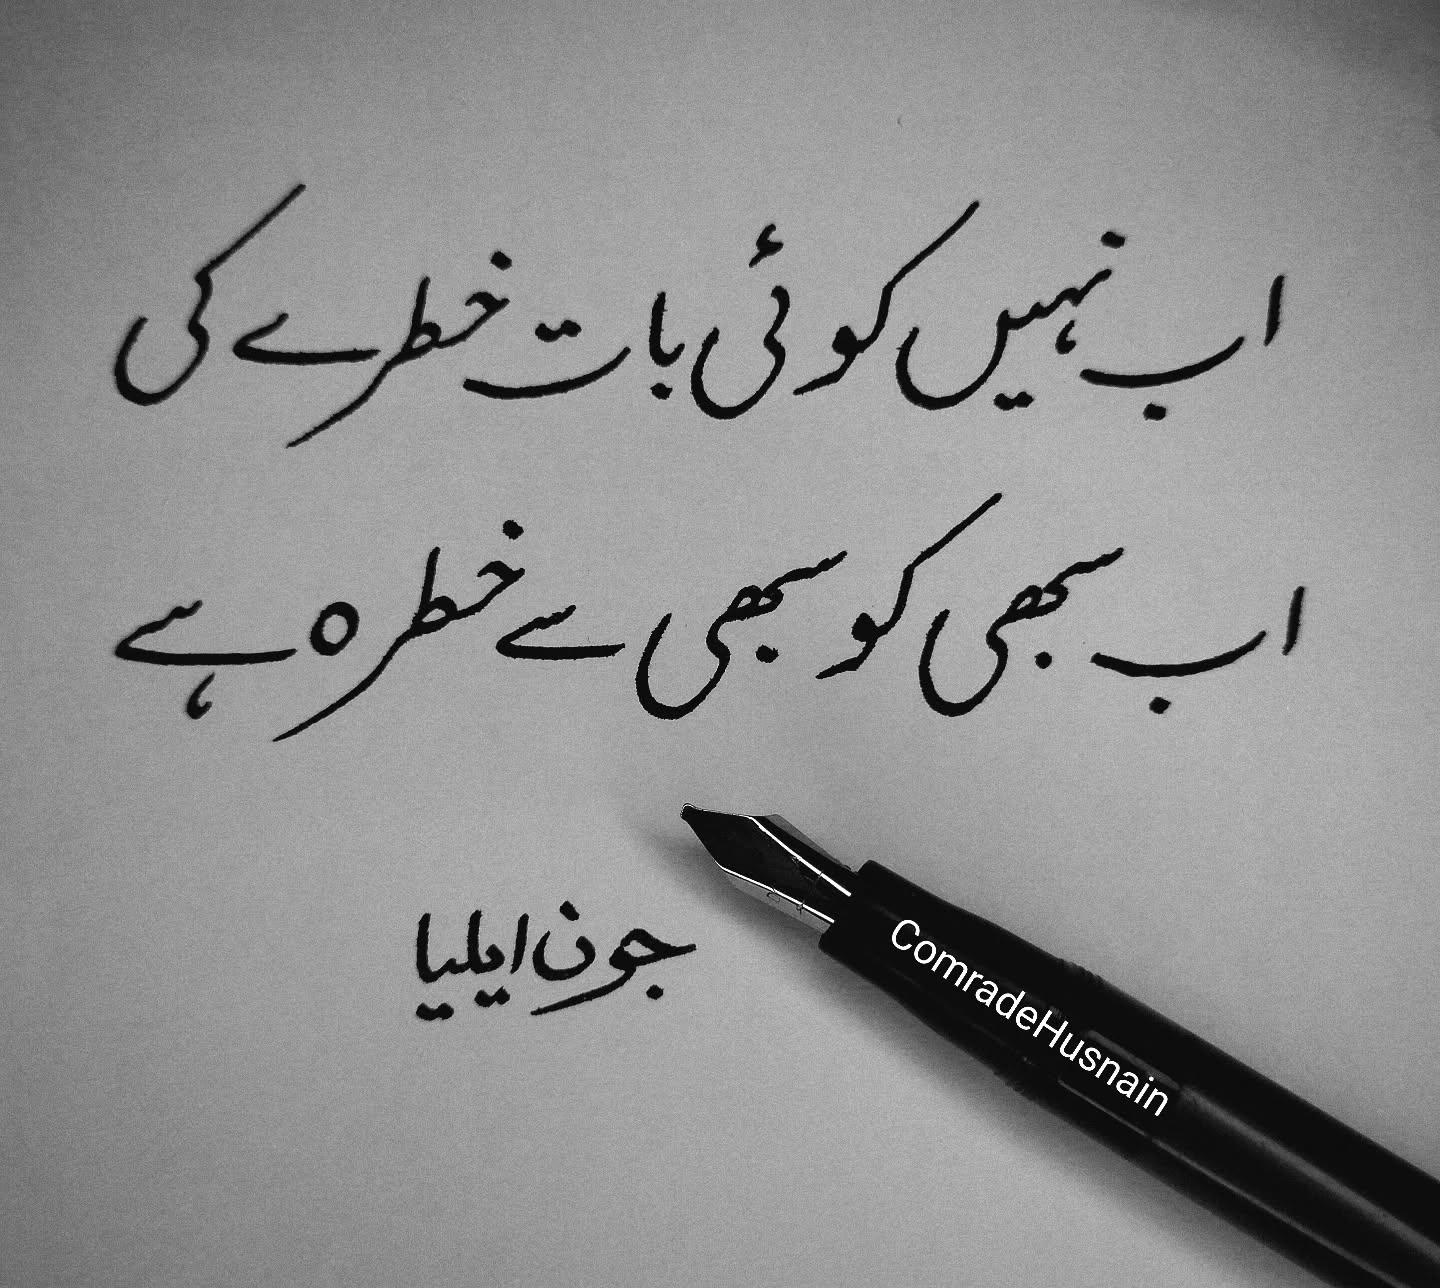 اب نہیں کوئی بات خطرے کی
اب سبھی کو سبھی سے خطرہ ہے
جون ایلیا
ComradeHusnain